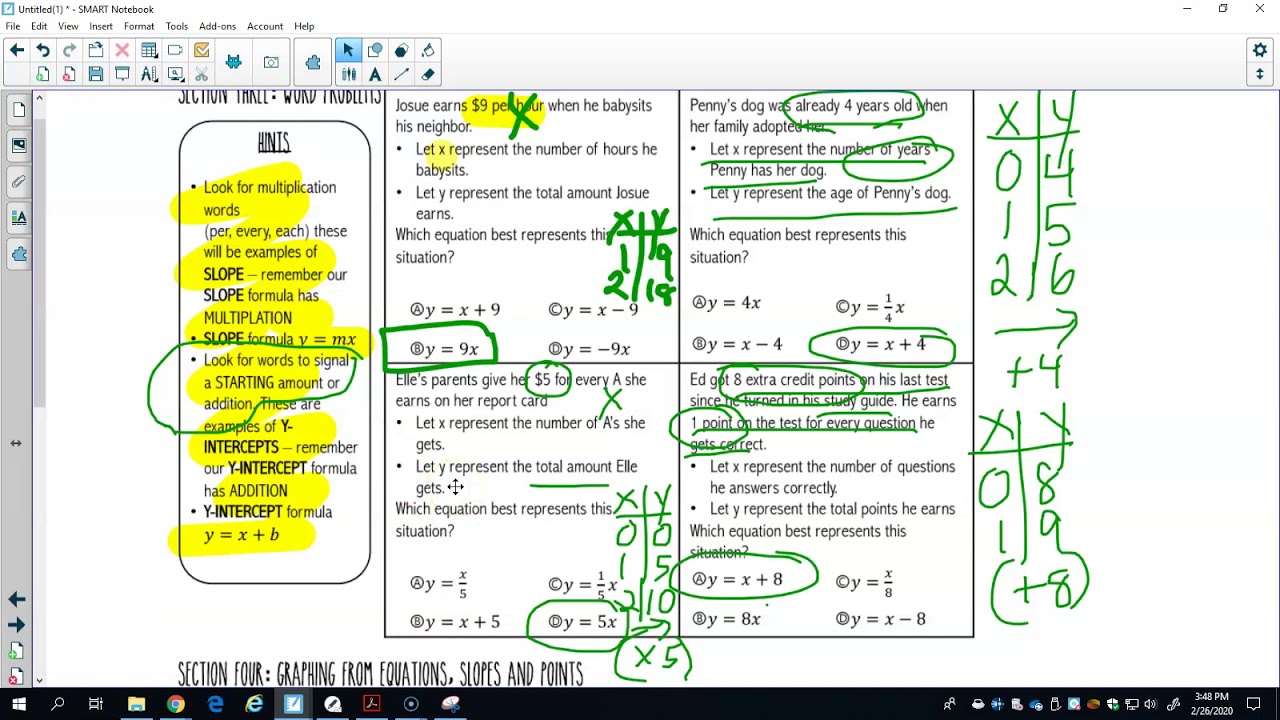 Untitled(1) * - SMART Notebook
File Edit View Insert Format Tools Add-ons Account Help
SECTION THREE: WORD PROBLEMS
HINTS
• Look for multiplication
words
(per, every, each) these
will be examples of
SLOPE – remember our
SLOPE formula has
MULTIPLATION
• SLOPE formula y = mx
• Look for words to signal
a STARTING amount or
addition. These are
examples of Y-
INTERCEPTS – remember
our Y-INTERCEPT formula
has ADDITION
• Y-INTERCEPT formula
y = x + b
Josue earns $9 per hour when he babysits
his neighbor.
X
• Let x represent the number of hours he
babysits.
• Let y represent the total amount Josue
earns.
Which equation best represents this
situation?
X Y
1 9
2 18
Ⓐ y = x + 9 Ⓒ y = x − 9
Ⓑ y = 9x Ⓓ y = −9x
Penny's dog was already 4 years old when
her family adopted her.
• Let x represent the number of years
Penny has her dog.
• Let y represent the age of Penny's dog.
Which equation best represents this
situation?
Ⓐ y = 4x Ⓒ y = 1/4 x
Ⓑ y = x − 4 Ⓓ y = x + 4
X Y
0 4
1 5
2 6
+4
Elle's parents give her $5 for every A she
earns on her report card
X
• Let x represent the number of A's she
gets.
• Let y represent the total amount Elle
gets.
Which equation best represents this
situation?
X Y
0 0
1 5
2 10
Ⓐ y = x/5 Ⓒ y = 1/5 x
Ⓑ y = x + 5 Ⓓ y = 5x
(x5)
Ed got 8 extra credit points on his last test
since he turned in his study guide. He earns
1 point on the test for every question he
gets correct.
• Let x represent the number of questions
he answers correctly.
• Let y represent the total points he earns
Which equation best represents this
situation?
Ⓐ y = x + 8 Ⓒ y = x/8
Ⓑ y = 8x Ⓓ y = x − 8
X Y
0 8
1 9
(+8)
SECTION FOUR: GRAPHING FROM EQUATIONS, SLOPES AND POINTS
3:48 PM
2/26/2020